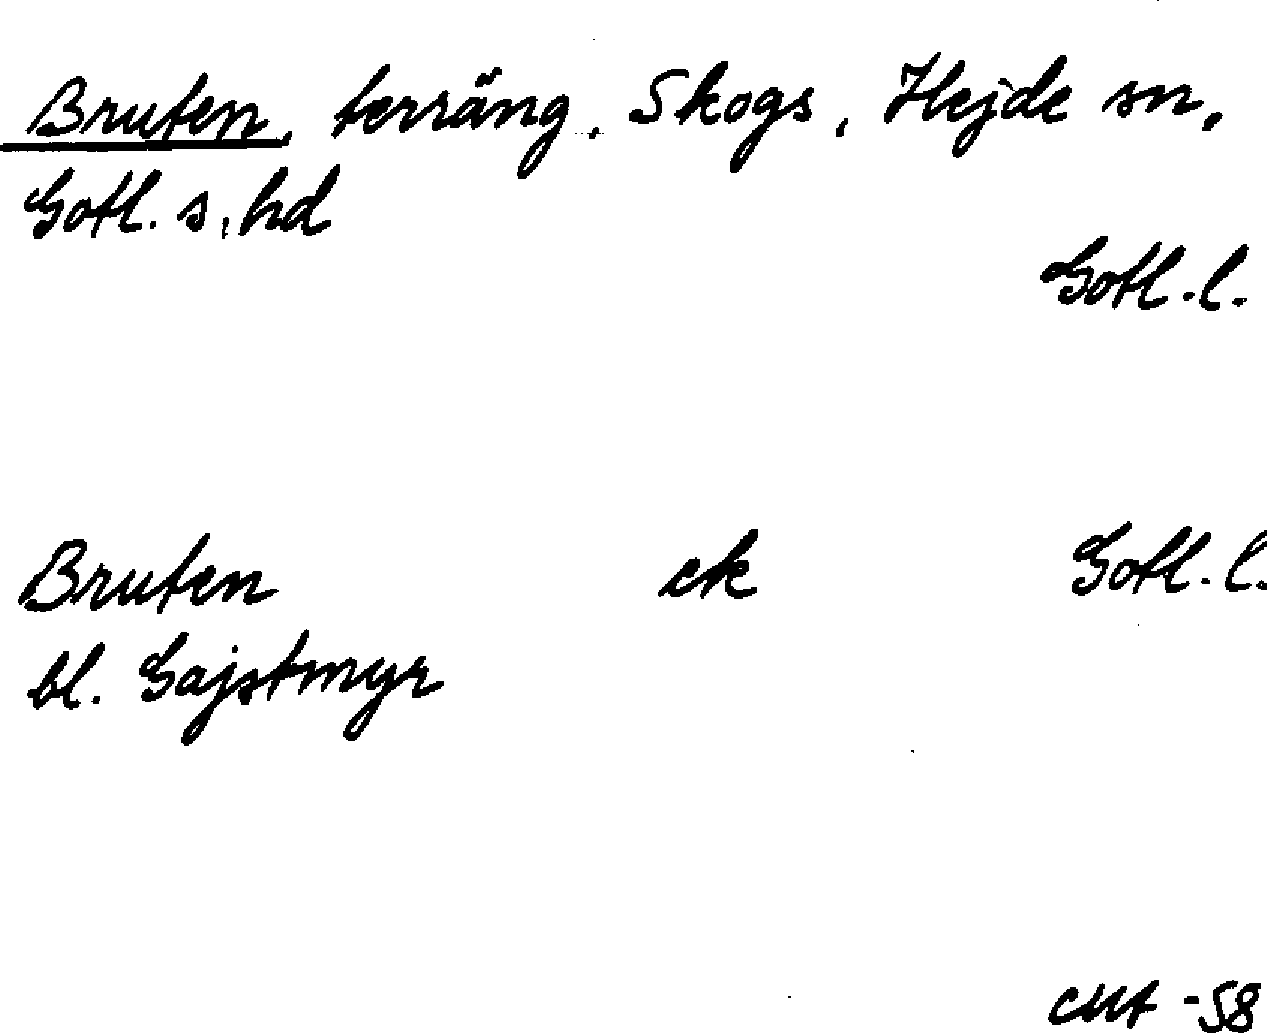 Bruten, terräng, Skogs, Hejde sn,
Gotl. s. hd
Gotl. l.
Bruten ek Gotl. l.
bl. Gajstmyr
-58